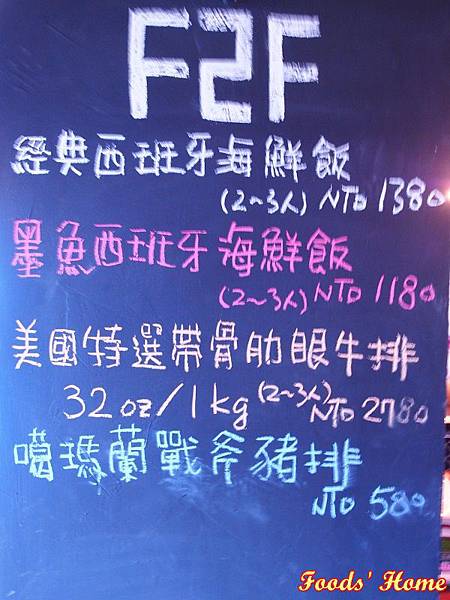 F2F
經典西班牙海鮮飯
(2~3人) NTD 1380
墨魚西班牙海鮮飯
(2~3人) NTD 1180
美國特選帶骨肋眼牛排
32oz/1kg (2~3人) NTD 2780
噶瑪蘭戰斧豬排
NTD 580
Foods' Home